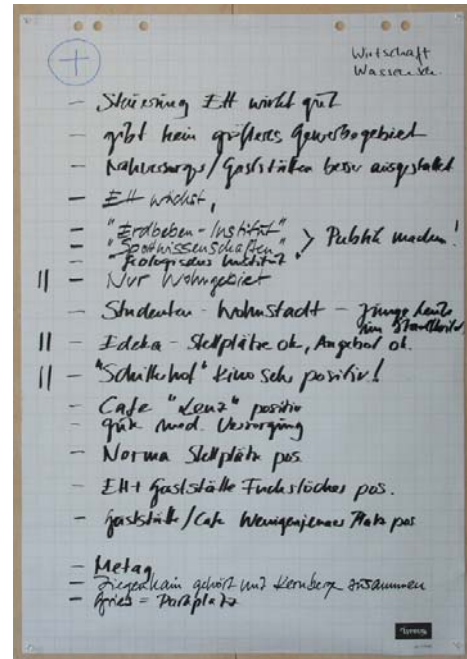 +
Wirtschaft
Wissensch.
- Steuerung EH wirkt gut
- gibt kein größeres Gewerbegebiet
- Nahversorgs/Gaststätten besser ausgestattet
- EH wächst,
- "Erdbeben-Institut"
- "Sportwissenschaften" > Publik machen!
- "Geologisches Institut"
|| - Nur Wohngebiet
- Studenten-Wohnstadt - junge Leute
im Stadtteil
|| - Edeka - Stellplätze ok, Angebot ok.
|| - "Schillerhof" Kino sehr positiv!
- Cafe "Lenz" positiv
gute med. Versorgung
- Norma Stellplätze pos.
- EH+ Gaststätte Fuchslöcher pos.
- Gaststätte/Cafe Wenigenjenaer Platz pos
- Metag
- Ziegenhain gehört mit Kernberge zusammen
- = Parkplatz